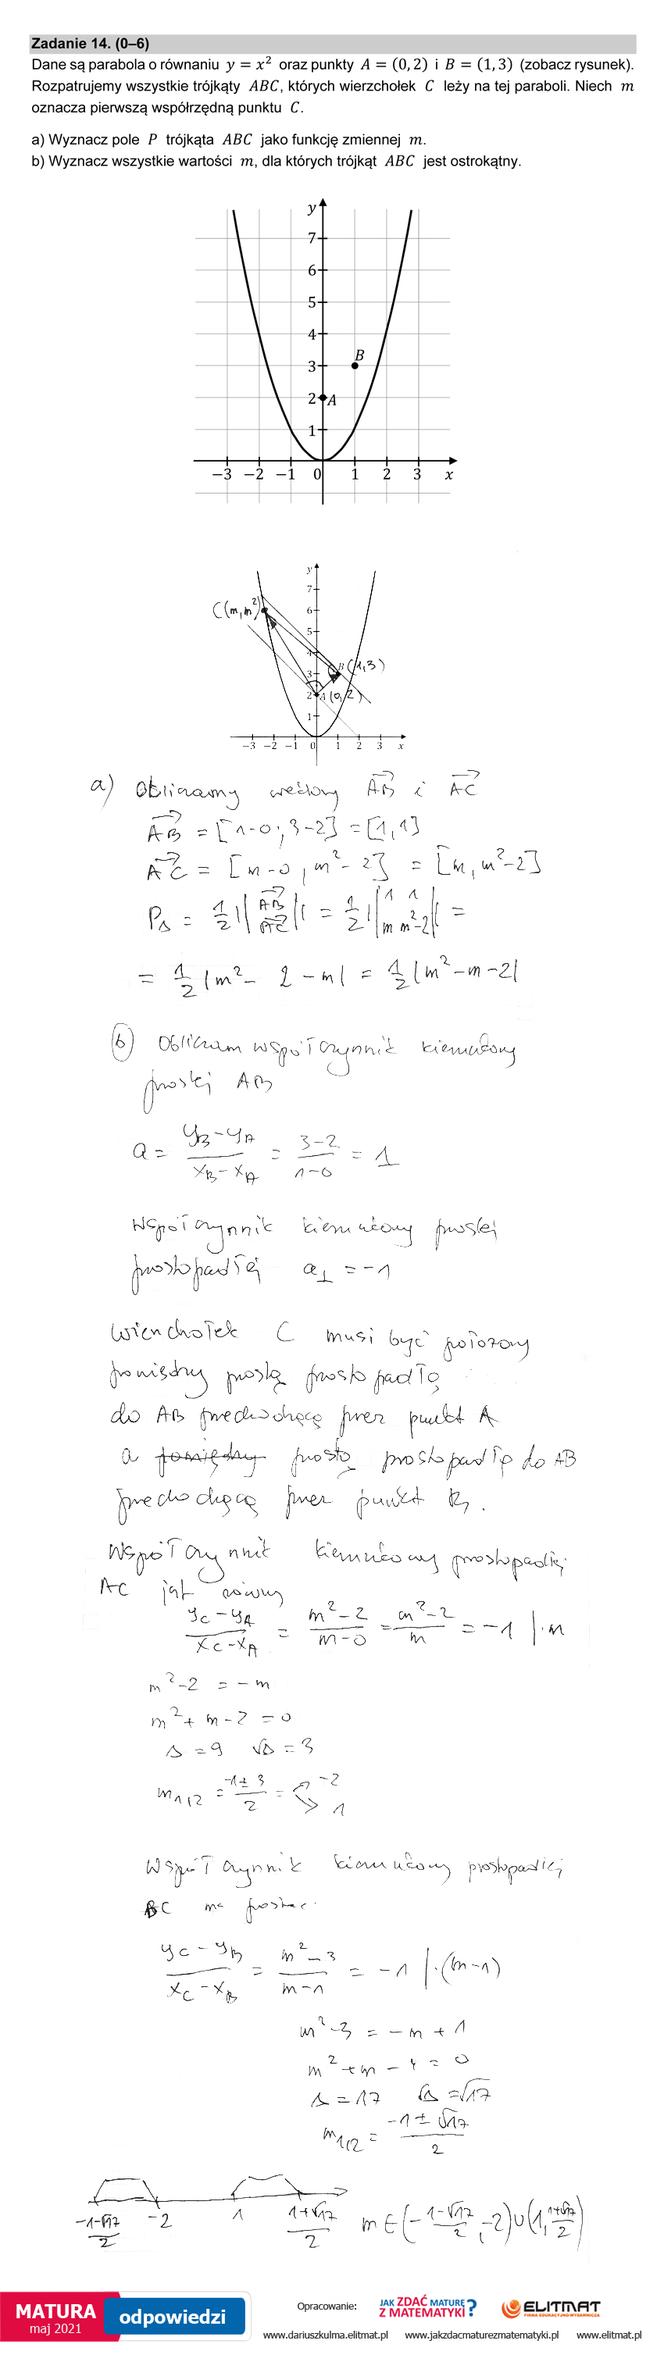 Zadanie 14. (0–6)
Dane są parabola o równaniu y = x² oraz punkty A = (0, 2) i B = (1, 3) (zobacz rysunek).
Rozpatrujemy wszystkie trójkąty ABC, których wierzchołek C leży na tej paraboli. Niech m
oznacza pierwszą współrzędną punktu C.
a) Wyznacz pole P trójkąta ABC jako funkcję zmiennej m.
b) Wyznacz wszystkie wartości m, dla których trójkąt ABC jest ostrokątny.
y
7
6
5
4
B
3
2 A
1
−3 −2 −1 0 1 2 3 x
y
7
C(m,m²) 6
5
4
3 B (1,3)
2 A (0,2)
1
−3 −2 −1 0 1 2 3 x
a) Obliczamy wektory AB i AC
AB = [1-0; 3-2] = [1,1]
AC = [m-0, m²-2] = [m, m²-2]
PΔ = 1/2 ||AB AC|| = 1/2 ||1 1 m m²-2|| =
= 1/2 |m² - 2 - m| = 1/2 |m² - m - 2|
b) Obliczam współczynnik kierunkowy
prostej AB
a = (yB - yA)/(xB - xA) = (3-2)/(1-0) = 1
Współczynnik kierunkowy prostej
prostopadłej a⊥ = -1
Wierzchołek C musi być położony
pomiędzy prostą prostopadłą
do AB przechodzącą przez punkt A
a pomiędzy prostą prostopadłą do AB
przechodzącą przez punkt B.
Współczynnik kierunkowy prostopadłej
AC jest równy
(yC - yA)/(xC - xA) = (m²-2)/(m-0) = (m²-2)/m = -1 |·m
m² - 2 = -m
m² + m - 2 = 0
Δ = 9 √Δ = 3
m1/2 = (-1 ± 3)/2 = -2
1
Współczynnik kierunkowy prostopadłej
BC ma postać:
(yC - yB)/(xC - xB) = (m²-3)/(m-1) = -1 |·(m-1)
m² - 3 = -m + 1
m² + m - 4 = 0
Δ = 17 √Δ = √17
m1/2 = (-1 ± √17)/2
(-1-√17)/2 -2 1 (1+√17)/2 m ∈ (-(1-√17)/2, -2) ∪ (1, (1+√17)/2)
MATURA
maj 2021
odpowiedzi
Opracowanie:
JAK ZDAĆ MATURĘ
Z MATEMATYKI?
ELITMAT
FIRMA EDUKACYJNO-WYDAWNICZA
www.dariuszkulma.elitmat.pl www.jakzdacmaturezmatematyki.pl www.elitmat.pl